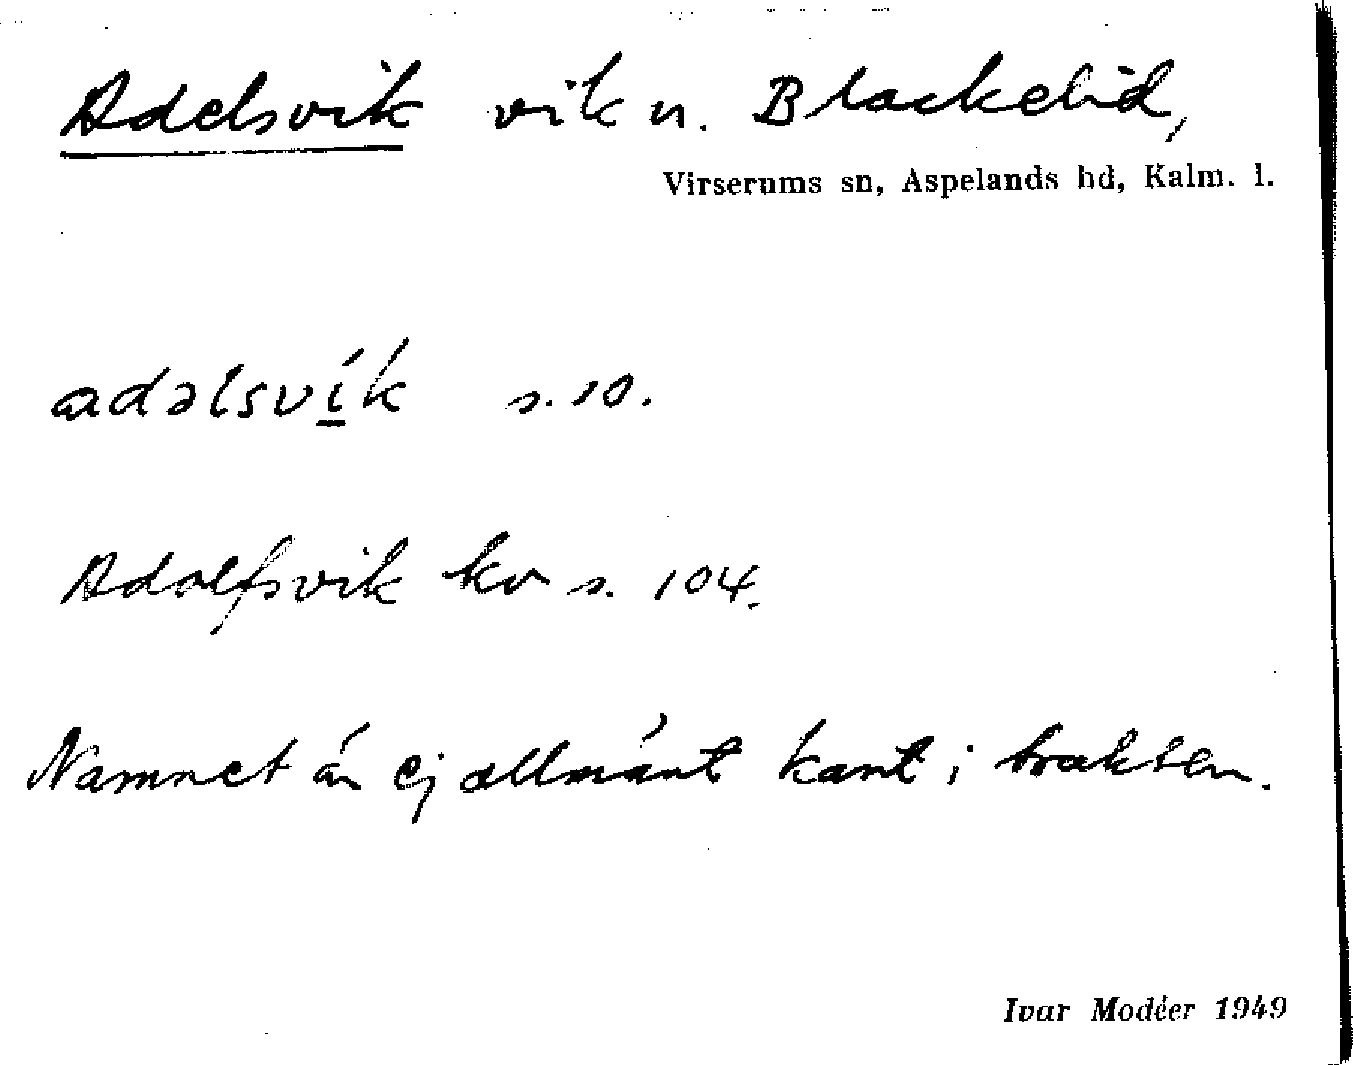 Adelsvik vik u. Blackelid,
Virserums sn, Aspelands hd, Kalm. l.
adəlsvı́k s. 10.
Adolfsvik kv s. 104.
Namnet är ej allmänt känt i trakten.
Ivar Modéer 1949